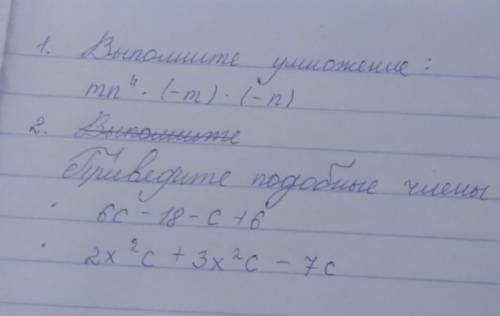 1. Выполните умножение:
mn⁴ · (-m) · (-n)
2. Выполните
Приведите подобные члены
· 6c - 18 - c + 6
· 2x²c + 3x²c - 7c